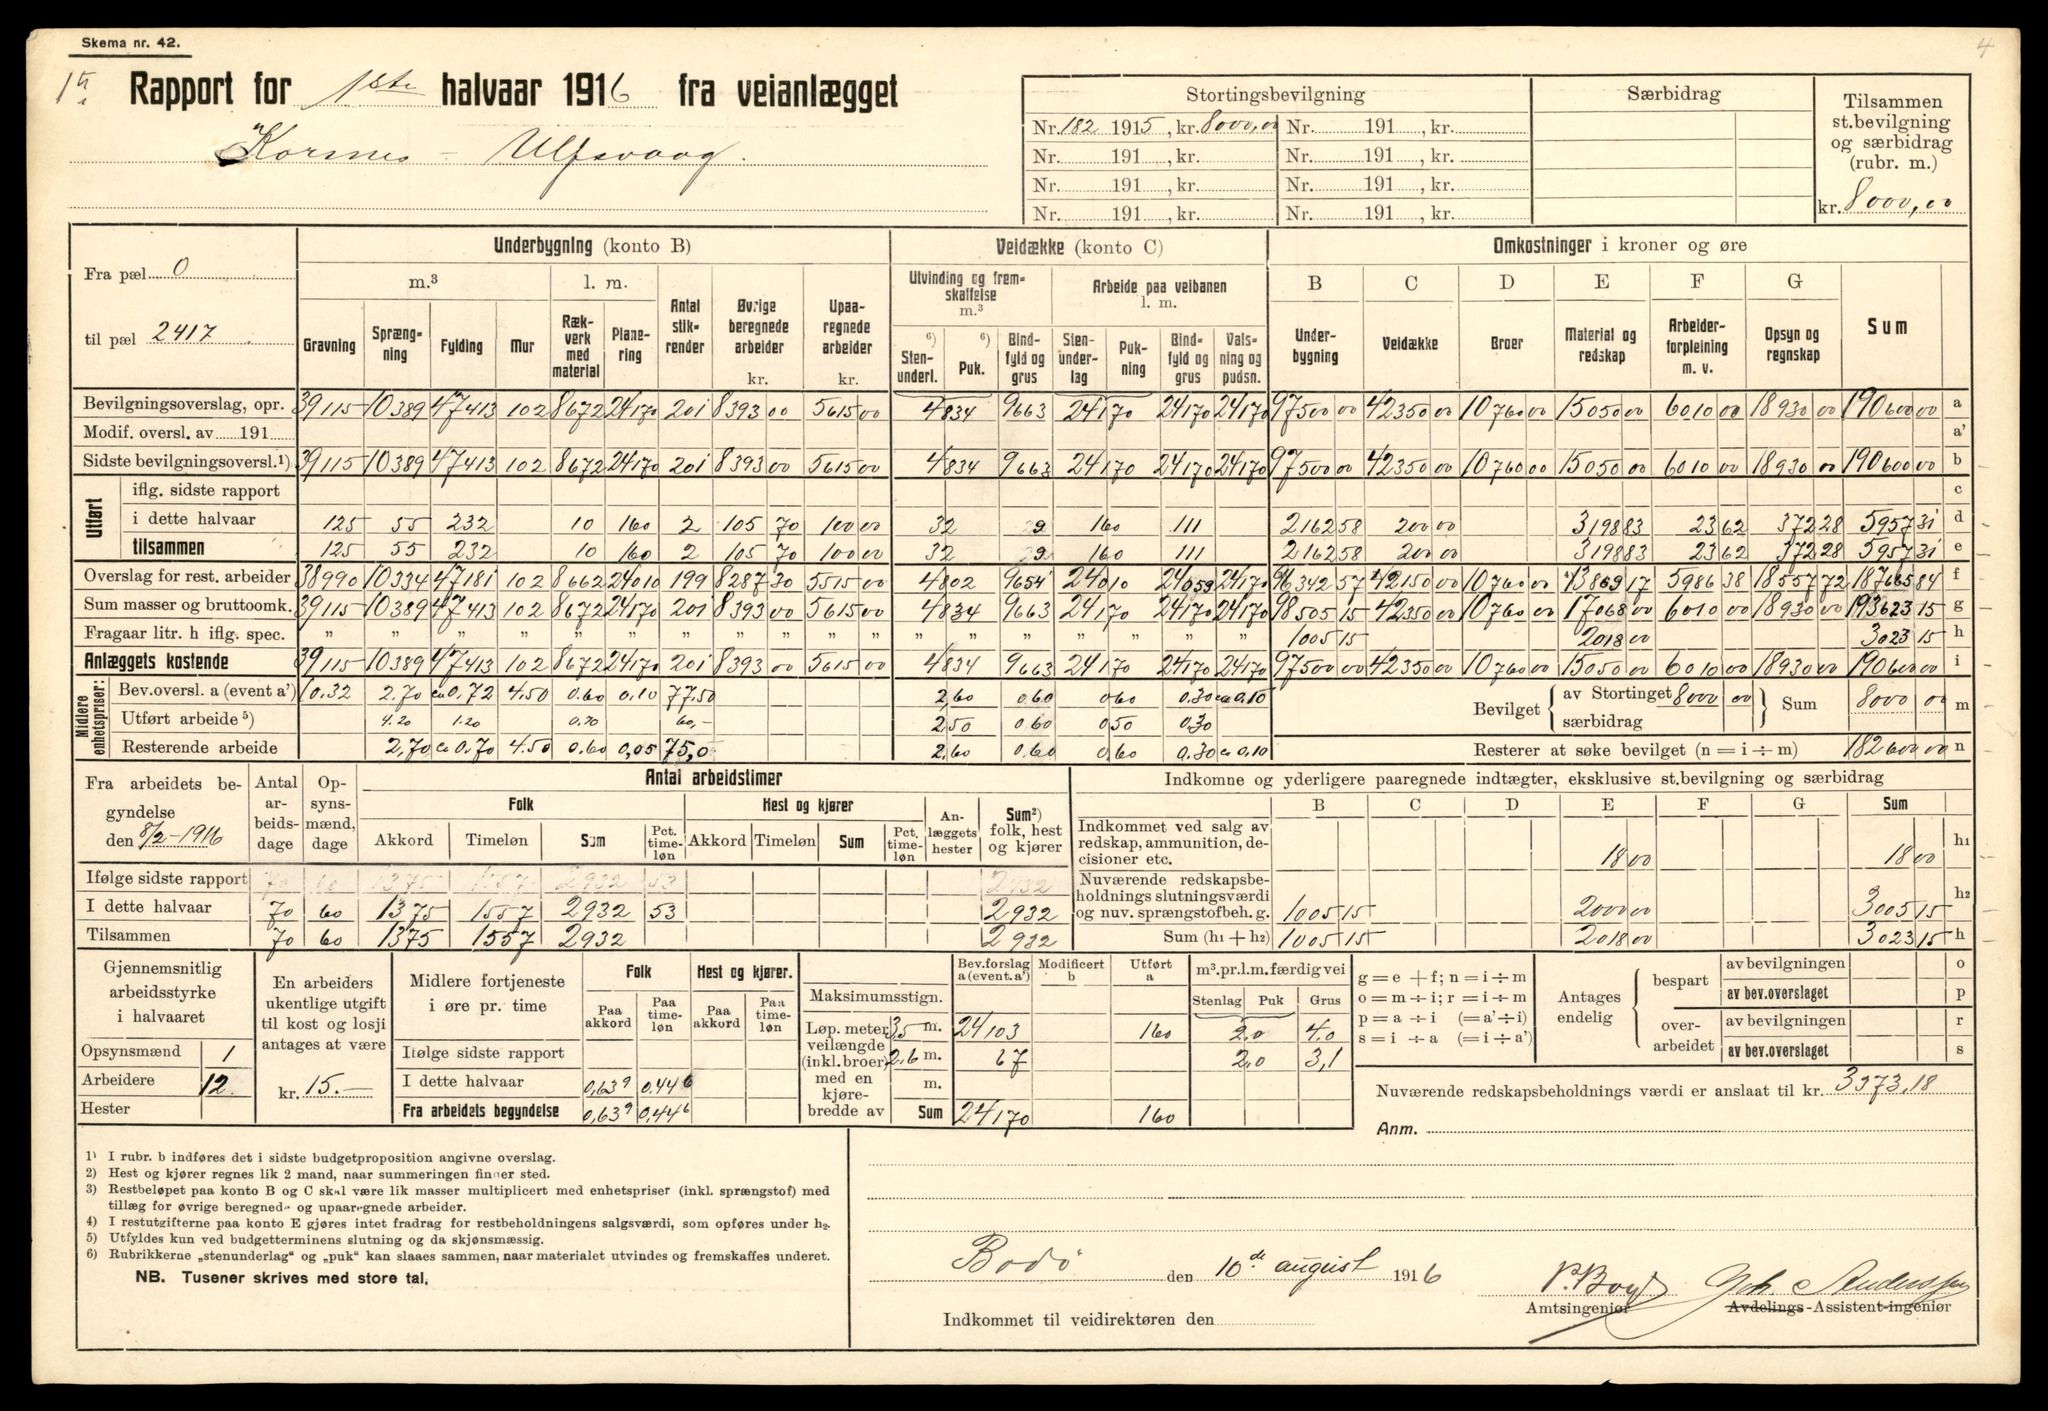 Skema nr. 42.
4
1ste Rapport for 1ste halvaar 1916 fra veianlægget
Kornes - Ulfsvaag.
Stortingsbevilgning | Særbidrag | Tilsammen st.bevilgning og særbidrag (rubr. m.)
Nr. 182 1915, kr. 8000,00 | Nr. 191 , kr.
Nr. 191 , kr. | Nr. 191 , kr.
Nr. 191 , kr. | Nr. 191 , kr.
Nr. 191 , kr. | Nr. 191 , kr.
kr. 8000,00
Fra pæl 0
til pæl 2417
Underbygning (konto B) | Veidække (konto C) | Omkostninger i kroner og øre
m.³ | l. m. | Antal stikrender | Øvrige beregnede arbeider kr. | Upaaregnede arbeider kr. | Utvinding og fremskaffelse m.³ | Arbeide paa veibanen l. m. | B | C | D | E | F | G | Sum
Gravning | Sprængning | Fylding | Mur | Rækverk med material | Planering | 6) Stenunderl. | 6) Puk. | Bindfyld og grus | Stenunderlag | Pukning | Bindfyld og grus | Valsning og pudsn. | Underbygning | Veidække | Broer | Material og redskap | Arbeiderforpleining m. v. | Opsyn og regnskap
Bevilgningsoverslag, opr. | 39115 | 10389 | 47413 | 102 | 8672 | 24170 | 201 | 8393 00 | 5615 00 | 4834 | 9663 | 24170 | 24170 | 24170 | 97500 00 | 42350 00 | 10760 00 | 15050 00 | 6010 00 | 18930 00 | 190600 00 | a
Modif. oversl. av 191 | a'
Sidste bevilgningsoversl.¹) | 39115 | 10389 | 47413 | 102 | 8672 | 24170 | 201 | 8393 00 | 5615 00 | 4834 | 9663 | 24170 | 24170 | 24170 | 97500 00 | 42350 00 | 10760 00 | 15050 00 | 6010 00 | 18930 00 | 190600 00 | b
Utført
iflg. sidste rapport | c
i dette halvaar | 125 | 55 | 232 | 10 | 160 | 2 | 105 70 | 100 00 | 32 | 9 | 160 | 111 | 2162 58 | 200 00 | 3198 83 | 23 62 | 372 28 | 5957 31 | d
tilsammen | 125 | 55 | 232 | 10 | 160 | 2 | 105 70 | 100 00 | 32 | 9 | 160 | 111 | 2162 58 | 200 00 | 3198 83 | 23 62 | 372 28 | 5957 31 | e
Overslag for rest. arbeider | 38990 | 10334 | 47181 | 102 | 8662 | 24010 | 199 | 8287 30 | 5515 00 | 4802 | 9654 | 24010 | 24059 | 24170 | 96342 57 | 42150 00 | 10760 00 | 13869 17 | 5986 38 | 18557 72 | 187665 84 | f
Sum masser og bruttoomk. | 39115 | 10389 | 47413 | 102 | 8672 | 24170 | 201 | 8393 00 | 5615 00 | 4834 | 9663 | 24170 | 24170 | 24170 | 98505 15 | 42350 00 | 10760 00 | 17068 00 | 6010 00 | 18930 00 | 193623 15 | g
Fragaar litr. h iflg. spec. | " | " | " | " | " | " | " | " " | " " | " | " | " | " | " | " | 1005 15 | 2018 00 | 3023 15 | h
Anlæggets kostende | 39115 | 10389 | 47413 | 102 | 8672 | 24170 | 201 | 8393 00 | 5615 00 | 4834 | 9663 | 24170 | 24170 | 24170 | 97500 00 | 42350 00 | 10760 00 | 15050 00 | 6010 00 | 18930 00 | 190600 00 | i
Midlere enhetspriser:
Bev.oversl. a (event a') | 0.32 | 2.70 | ca 0.72 | 4.50 | 0.60 | 0.10 | 77.50 | 2,60 | 0,60 | 0,60 | 0.30 | ca 0.10
Utført arbeide⁵) | 4.20 | 1.20 | 0.70 | 60,- | 2,50 | 0.60 | 0,50 | 0.30
Resterende arbeide | 2.70 | ca 0.70 | 4.50 | 0.60 | 0,05 | 75,0 | 2.60 | 0.60 | 0.60 | 0.30 | ca 0.10
Bevilget { av Stortinget 8000 00 særbidrag } Sum 8000 00 m
Resterer at søke bevilget (n = i ÷ m) 182600 00 n
Fra arbeidets begyndelse den 8/2-1916 | Antal arbeidsdage | Opsynsmænd, dage | Antal arbeidstimer
Folk | Hest og kjører | Anlæggets hester | Sum²) folk, hest og kjører
Akkord | Timeløn | Sum | Pct. timeløn | Akkord | Timeløn | Sum | Pct. timeløn
Ifølge sidste rapport | 70 | 60 | 1375 | 1557 | 2932 | 53 | 2932
I dette halvaar | 70 | 60 | 1375 | 1557 | 2932 | 53 | 2932
Tilsammen | 70 | 60 | 1375 | 1557 | 2932 | 2932
Indkomne og yderligere paaregnede indtægter, eksklusive st.bevilgning og særbidrag
B | C | D | E | F | G | Sum
Indkommet ved salg av redskap, ammunition, decisioner etc. | 18 00 | 18 00 | h1
Nuværende redskapsbeholdnings slutningsværdi og nuv. sprængstofbeh. g. | 1005 15 | 2000 00 | 3005 15 | h2
Sum (h1 + h2) | 1005 15 | 2018 00 | 3023 15 | h
Gjennemsnitlig arbeidsstyrke i halvaaret
Opsynsmænd 1
Arbeidere 12.
Hester
En arbeiders ukentlige utgift til kost og losji antages at være
kr. 15.-
Midlere fortjeneste i øre pr. time | Folk | Hest og kjører.
Paa akkord | Paa timeløn | Paa akkord | Paa timeløn
Ifølge sidste rapport
I dette halvaar | 0,63⁹ | 0,44⁶
Fra arbeidets begyndelse | 0,63⁹ | 0,44⁶
Maksimumsstign. | Bev.forslag a (event. a') | Modificert b | Utført a | m³.pr.l.m.færdig vei
Stenlag | Puk | Grus
Løp. meter veilængde (inkl. broer) med en kjørebredde av
3,5 m. | 24103 | 160 | 2.0 | 4.0
2.6 m. | 67 | 2.0 | 3,1
m.
Sum | 24170 | 160
g = e + f; n = i ÷ m
o = m ÷ i; r = i ÷ m
p = a ÷ i (= a' ÷ i)
s = i ÷ a (= i ÷ a')
Antages endelig { bespart | av bevilgningen | o
av bev.overslaget | p
overarbeidet | av bevilgningen | r
av bev.overslaget | s
Nuværende redskapsbeholdnings værdi er anslaat til kr. 3973,18
Anm.
1) I rubr. b indføres det i sidste budgetproposition angivne overslag.
2) Hest og kjører regnes lik 2 mand, naar summeringen finner sted.
3) Restbeløpet paa konto B og C skal være lik masser multiplicert med enhetspriser (inkl. sprængstof) med
tillæg for øvrige beregnede og upaaregnede arbeider.
4) I restutgifterne paa konto E gjøres intet fradrag for restbeholdningens salgsværdi, som opføres under h₂.
5) Utfyldes kun ved budgetterminens slutning og da skjønsmæssig.
6) Rubrikkerne „stenunderlag" og „puk" kan slaaes sammen, naar materialet utvindes og fremskaffes underet.
NB. Tusener skrives med store tal.
Bodø den 10de august 1916
Indkommet til veidirektøren den
Amtsingeniør
Joh. Anderssen
Avdelings-Assistent-ingeniør